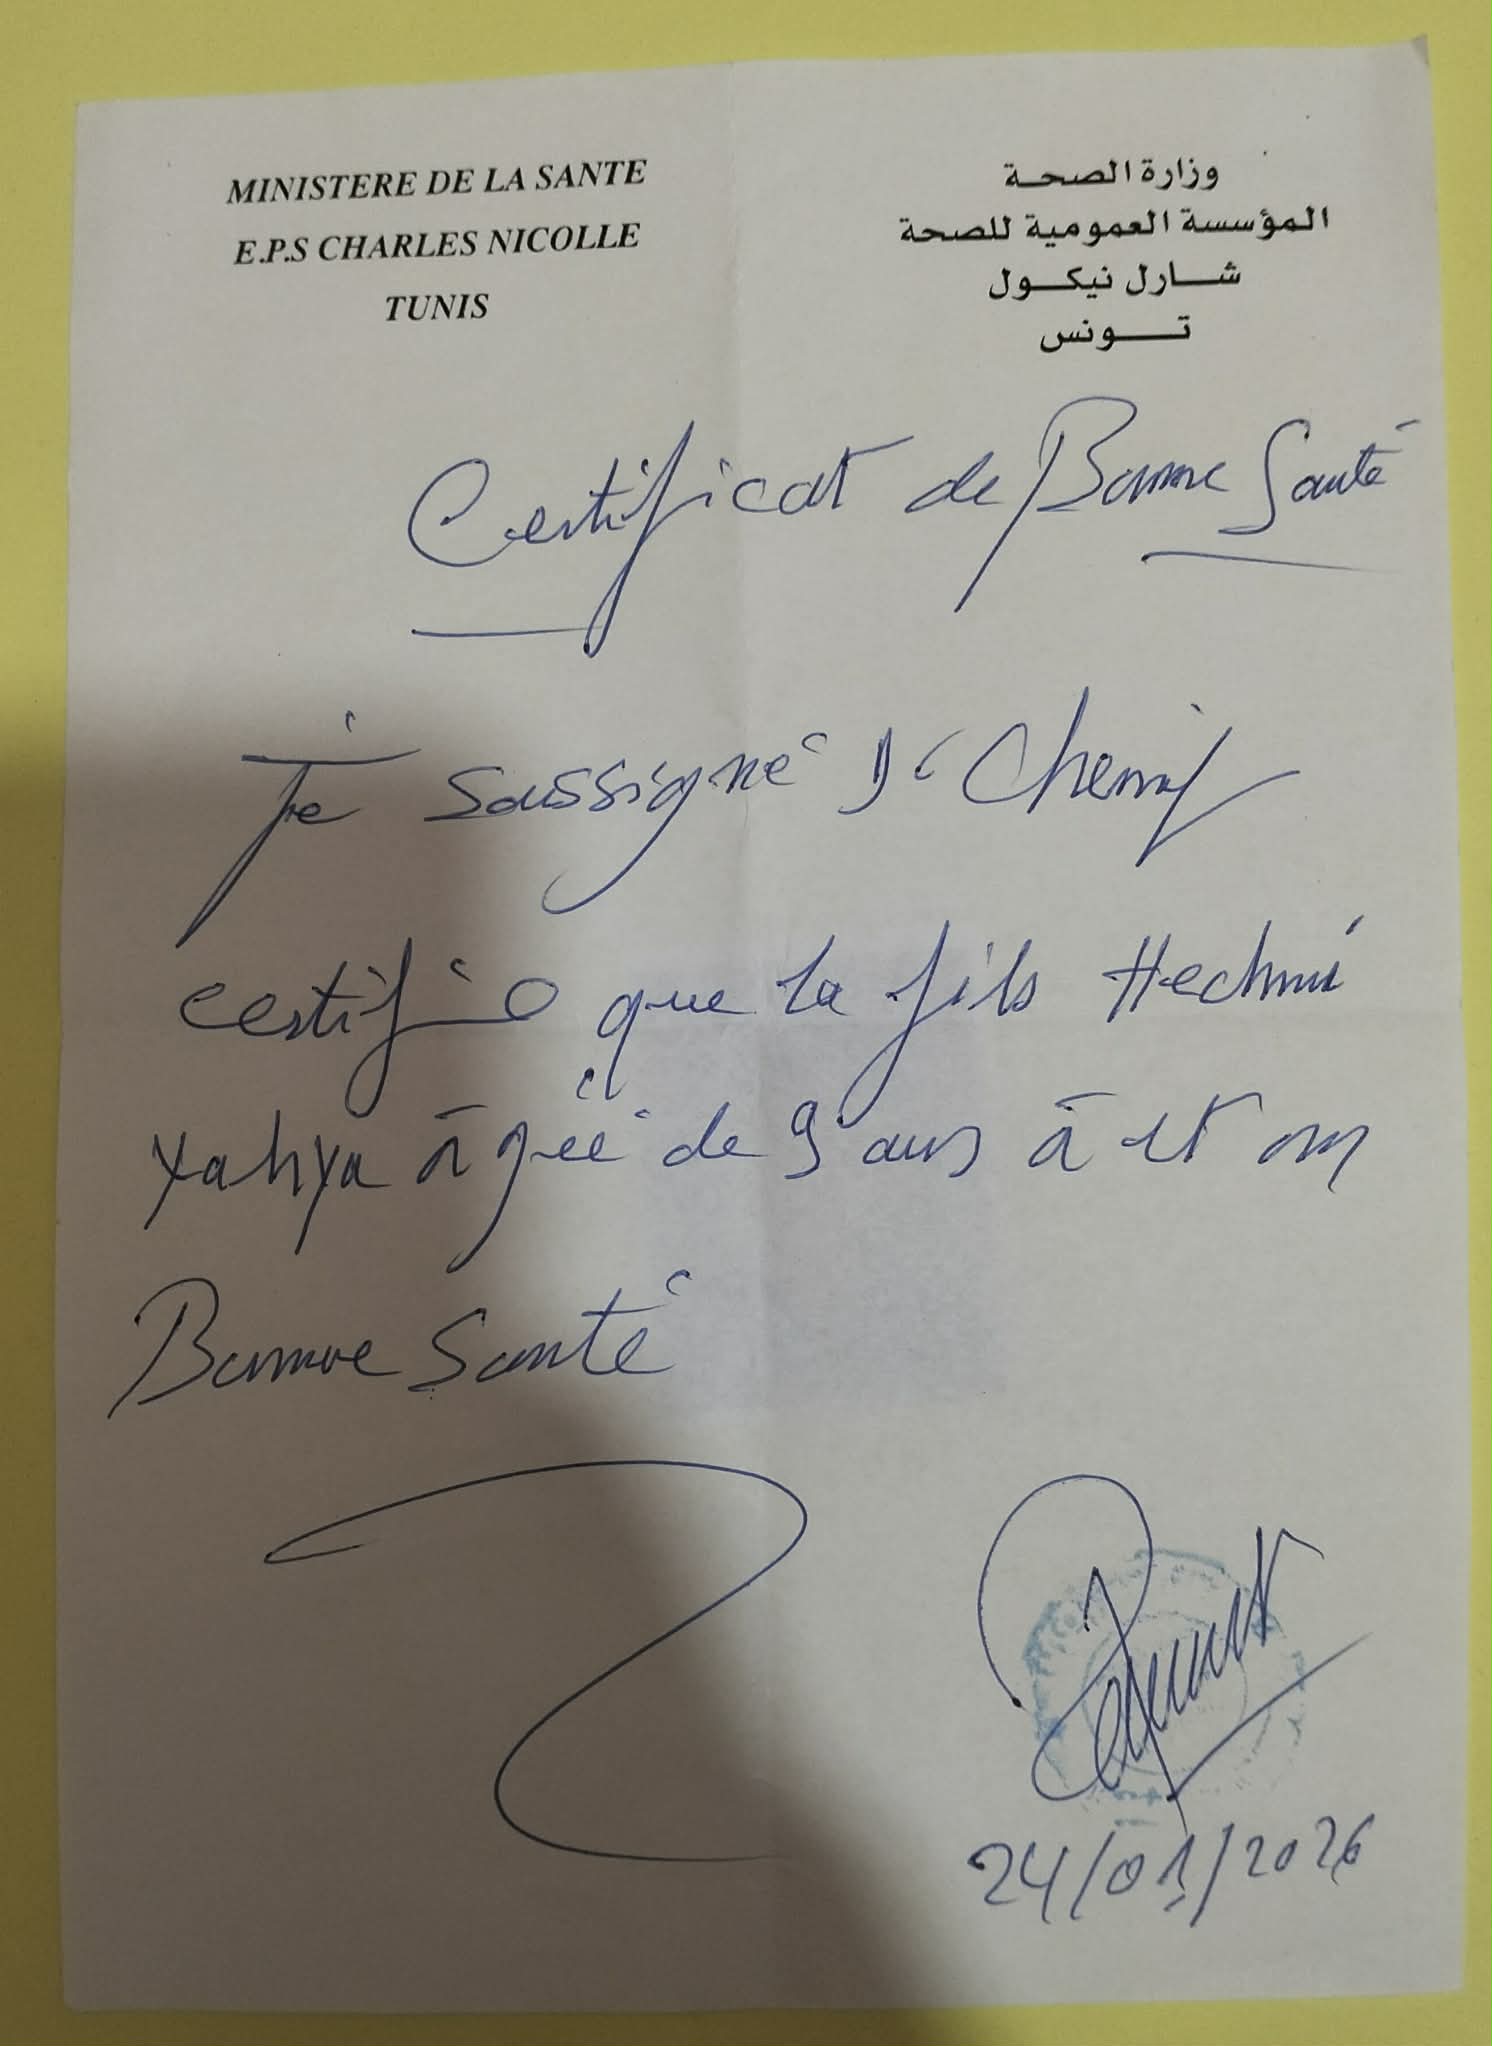 MINISTERE DE LA SANTE
E.P.S CHARLES NICOLLE
TUNIS
وزارة الصحة
المؤسسة العمومية للصحة
شارل نيكول
تونس
Certificat de Bonne Santé
Je soussigné Dr
certifie que la fils Hechmi
Yahya âgée de 9 ans à et en
Bonne Santé
24/01/2026